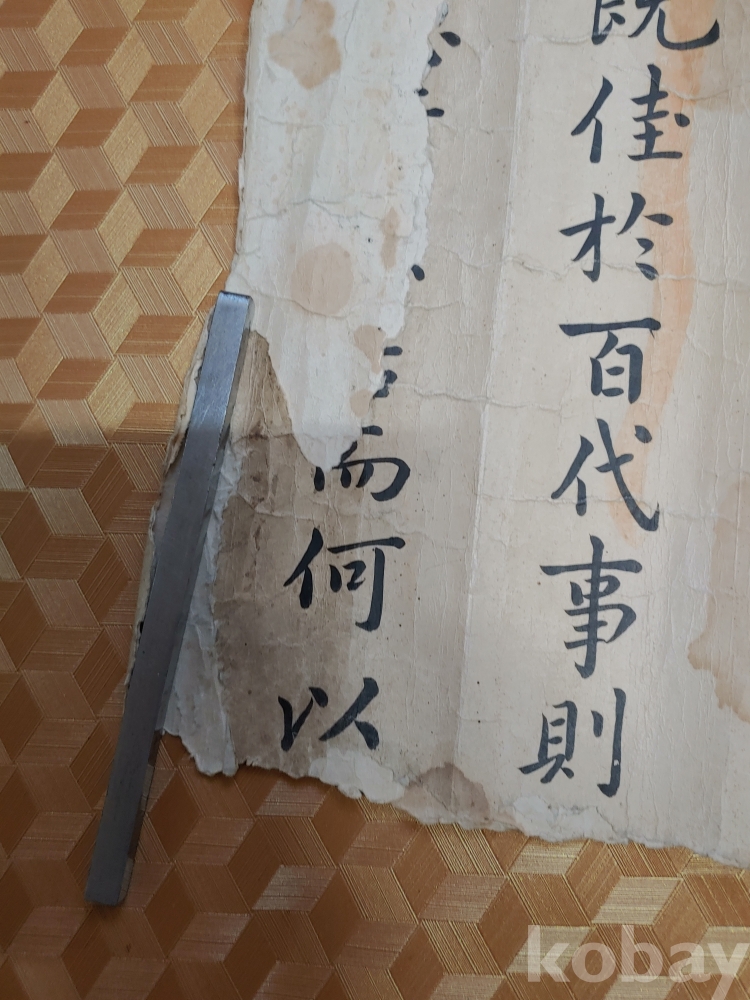 既佳於百代事則
而何以
kobay